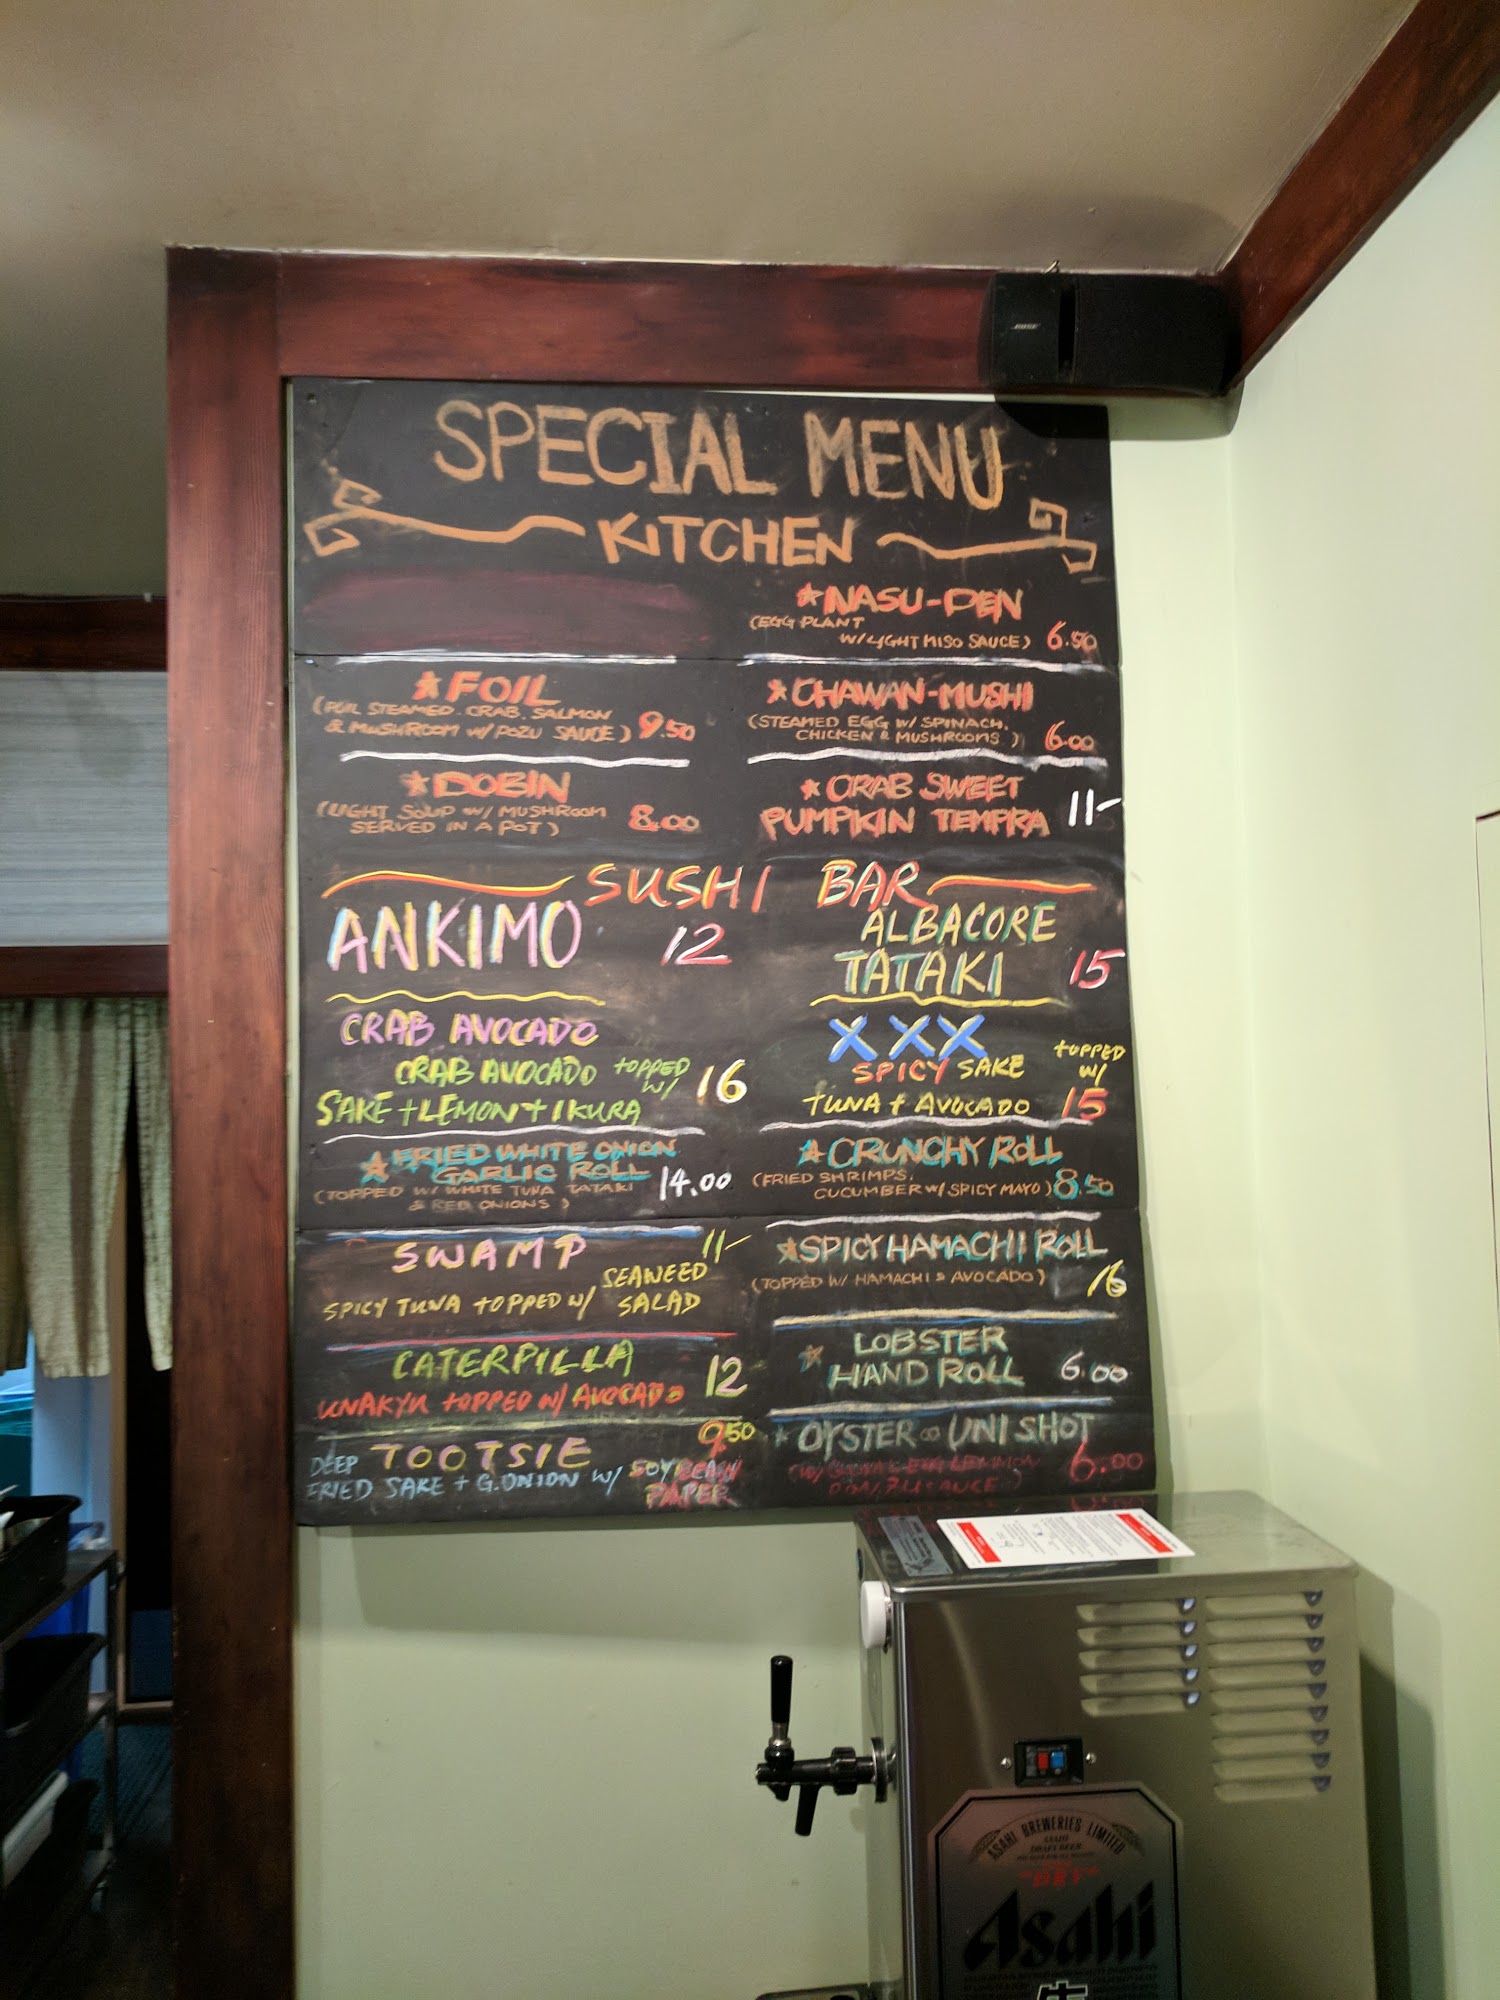 BOSE
SPECIAL MENU
KITCHEN
☆NASU-DEN
(EGG PLANT
W/LIGHT MISO SAUCE) 6.50
☆FOIL
(FOIL STEAMED. CRAB. SALMON
& MUSHROOM W/ POZU SAUCE) 9.50
☆CHAWAN-MUSHI
(STEAMED EGG W/ SPINACH.
CHICKEN & MUSHROOMS) 6.00
☆DOBIN
(LIGHT SOUP W/ MUSHROOM
SERVED IN A POT) 8.00
☆CRAB SWEET
PUMPKIN TEMPRA 11-
SUSHI BAR
ANKIMO 12
ALBACORE
TATAKI 15
CRAB AVOCADO
CRAB AVOCADO TOPPED W/ 16
SAKE + LEMON + IKURA
XXX
SPICY SAKE TOPPED W/
TUNA + AVOCADO 15
☆FRIED WHITE ONION
GARLIC ROLL
(TOPPED W/ WHITE TUNA TATAKI
& RED ONIONS) 14.00
☆CRUNCHY ROLL
(FRIED SHRIMPS.
CUCUMBER W/ SPICY MAYO) 8.50
SWAMP 11-
SPICY TUNA TOPPED W/ SEAWEED SALAD
☆SPICY HAMACHI ROLL
(TOPPED W/ HAMACHI & AVOCADO) 16
CATERPILLA 12
UNAKYU TOPPED W/ AVOCADO
☆LOBSTER
HAND ROLL 6.00
TOOTSIE 9.50
DEEP FRIED SAKE + G.ONION W/ SOYBEAN PAPER
☆OYSTER ∞ UNI SHOT
6.00
ASAHI BREWERIES LIMITED
ASAHI
DRAFT BEER
Asahi
生